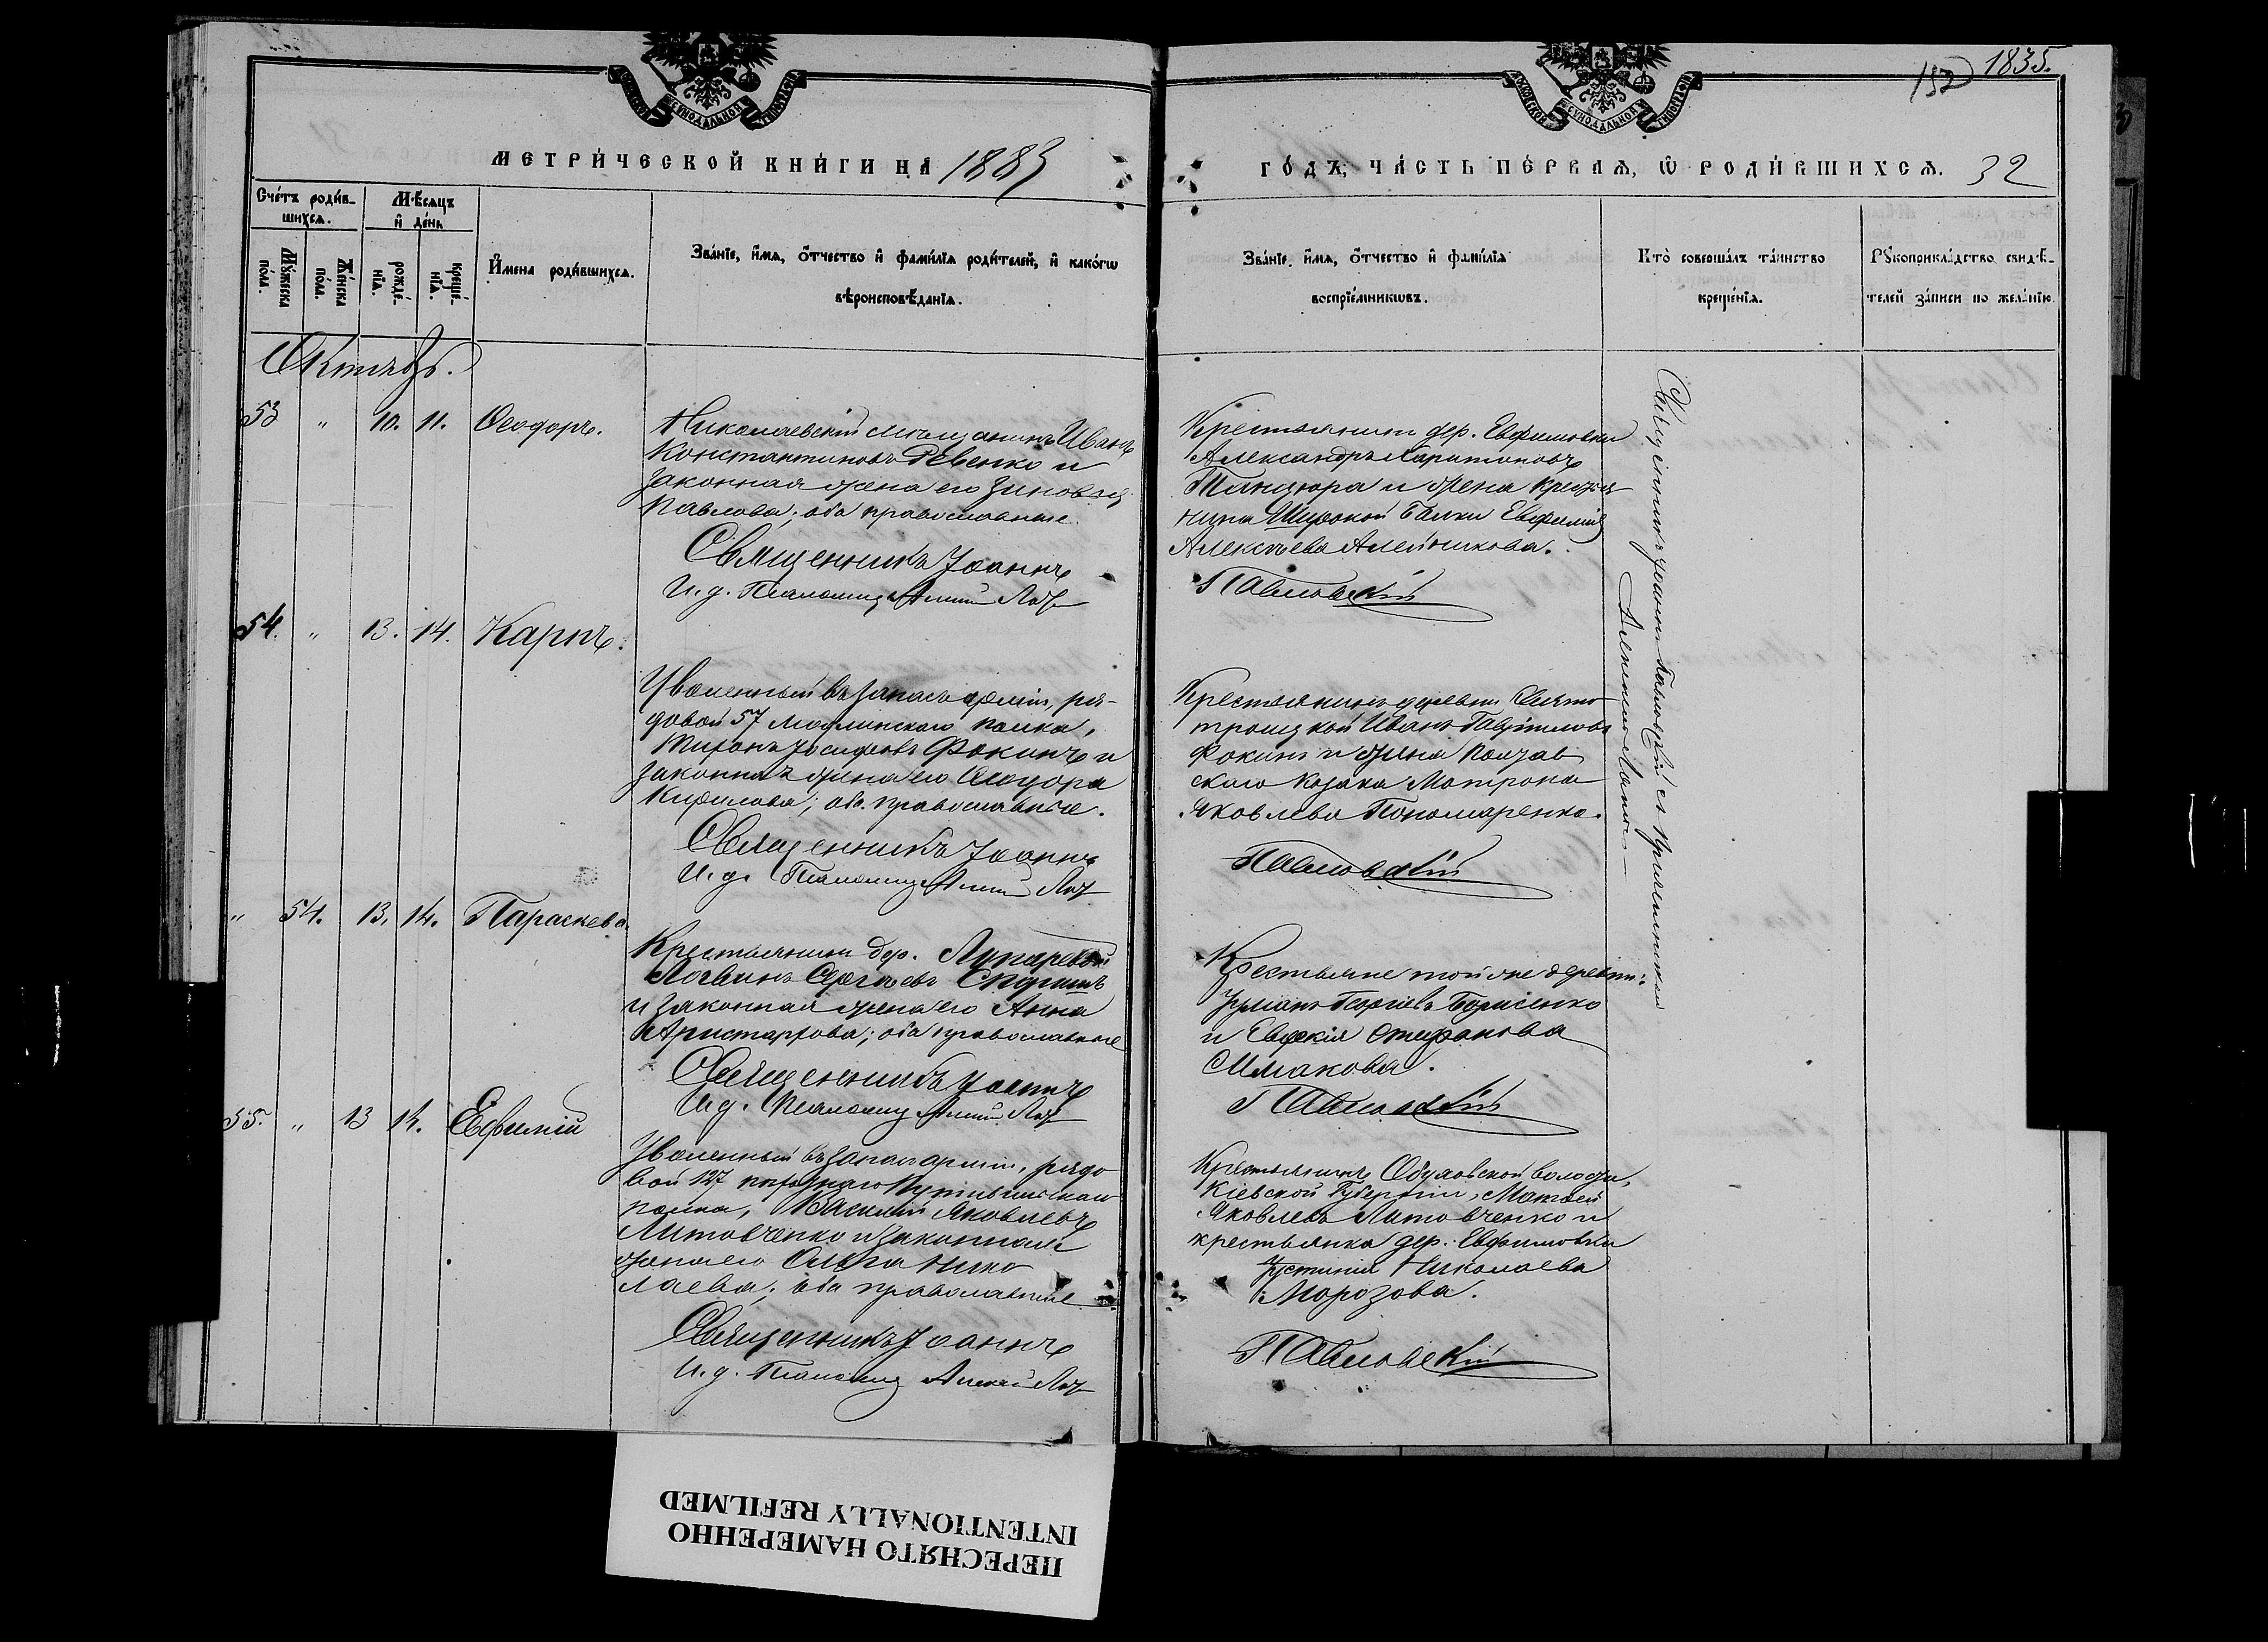 1835.
152
МОСКОВСКОЙ СѴНОДАЛЬНОЙ ТИПОГРАФІИ
МОСКОВСКОЙ СѴНОДАЛЬНОЙ ТИПОГРАФІИ
МЕТРИ́ЧЕСКОЙ КНИ́ГИ НА 1883
ГО́ДЪ, ЧА́СТЬ ПЕ́РВАѦ, Ѡ РОДИ́ВШИХСѦ. 32
Сче́тъ роди́в-
шихсѧ.
Мꙋ́жеска по́ла.
Же́нска по́ла.
Мѣ́сѧцъ
и҆ де́нь
рожде́-
нїѧ.
креще́-
нїѧ.
И҆мена роди́вшихсѧ.
Зва́нїе, и҆́мѧ, ѻ҆́тчество и҆ фами́лїѧ роди́телей, и҆ како́гѡ
вѣроисповѣ́данїѧ.
Зва́нїе, и҆́мѧ, ѻ҆́тчество и҆ фами́лїѧ
воспрїе́мникѡвъ.
Кто̀ соверша́лъ та́инство
креще́нїѧ.
Рꙋкоприкла́дство свидѣ́-
телей за́писи по жела́нїю.
Октябрь.
53 " 10. 11. Ѳеодоръ.
Николаевскій мѣщанинъ Иванъ
Константиновъ Ревенко и
законная жена его Зиновія
Павлова; оба православные.
Священникъ Іоаннъ
И. д. Псаломщ.
Крестьянинъ дер. Евфимовки
Александръ Харитоновъ
Танцюра и жена крестья
нина Широкой Балки Евфимія
Алексѣева Алейникова.
Павловскій
Священникъ Іоаннъ Павловскій съ
54. " 13. 14. Карпъ.
Уволенный въ запасъ арміи, ря-
довой 57 Модлинскаго полка,
Миронъ Іосифовъ Фокинъ и
законная жена его Ѳеодора
Кирилова; оба православные.
Священникъ Іоаннъ
И. д. Псаломщ.
Крестьянинъ деревни Свято
троицкой Иванъ Гавриловъ
Фокинъ и жена Полтав
скаго козака Матрона
Яковлева Пономаренко.
Павловскій
" 54. 13. 14. Параскева.
Крестьянинъ дер. Лупаревой
Логвинъ Сергѣевъ
и законная жена его Анна
Аристархова; оба православные
Священникъ Іоаннъ
И. д. Псаломщ.
Крестьяне той же деревни:
Георгіевъ Борисенко
и Евдокія Стефанова
Павловскій
55. " 13 14. Ефимій
Уволенный въ запасъ арміи, рядо
вой 127 пѣхотнаго Путивльскаго
полка, Василій Яковлевъ
Литовченко и законная
жена его Ольга Нико
лаева; оба православные
Священникъ Іоаннъ
И. д. Псаломщ.
Крестьянинъ Обуховской волости,
Кіевской Губерніи, Матѳей
Яковлевъ Литовченко и
крестьянка дер. Евфимовки
Іустинія Николаева
Морозова.
Павловскій
ПЕРЕСНЯТО НАМЕРЕННО
INTENTIONALLY REFILMED